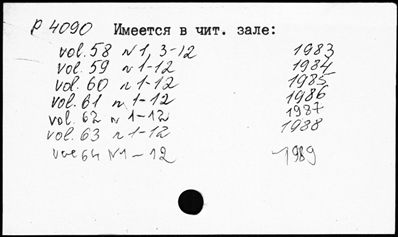 P 4090 Имеется в чит. зале:
vol. 58 n 1, 3-12 1983
vol. 59 n 1-12 1984
vol. 60 n 1-12 1985
vol. 61 n 1-12 1986
vol. 62 n 1-12 1987
vol. 63 n 1-12 1988
vol 64 N 1-12 1989